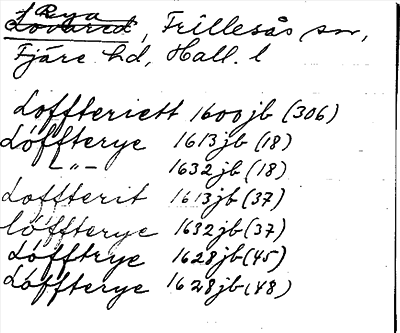 Rya
Lövared, Frillesås sn,
Fjäre hd, Hall. l
Loffteriett 1600 jb (306)
Løffterye 1613 jb (18)
— " — 1632 jb (18)
Loffterit 1613 jb (37)
løffterye 1632 jb (37)
Løfftrye 1628 jb (45)
Løffterye 1628 jb (48)